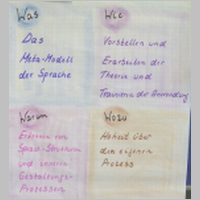 Was
Das
Meta-Modell
der Sprache
Wie
Vorstellen und
Erarbeiten der
Theorie und
Training der Anwendung
Warum
Erkennen von
Sprach-Strukturen
und inneren
Gestaltungs-
Prozessen
Wozu
Hoheit über
den eigenen
Prozess